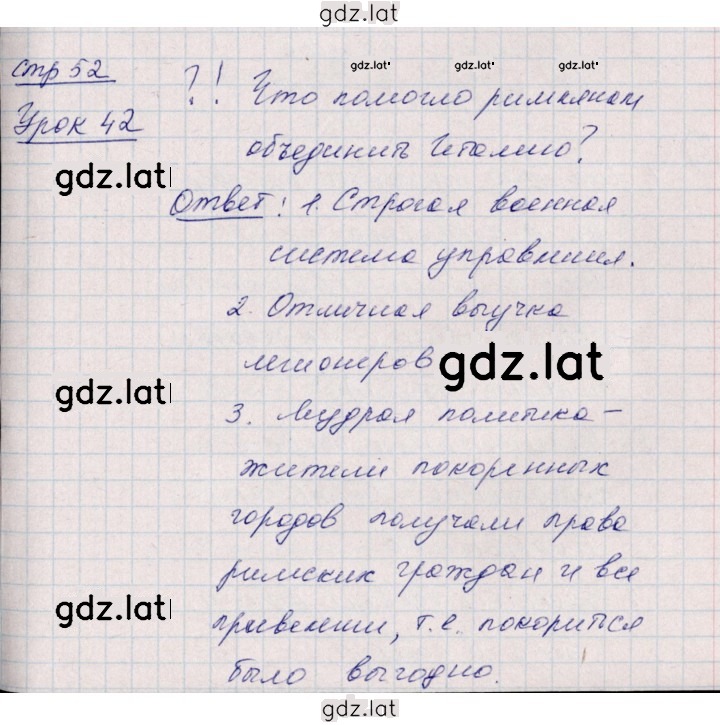 gdz.lat
стр 52
Урок 42
?! Что помогло римлянам
объединить Италию?
Ответ: 1. Строгая военная
система управления.
2. Отличная выучка
легионеров
3. Мудрая политика –
жители покоренных
городов получали права
римских граждан и все
привелегии, т.е. покориться
было выгодно.
gdz.lat
gdz.lat
gdz.lat
gdz.lat
gdz.lat
gdz.lat
gdz.lat
gdz.lat